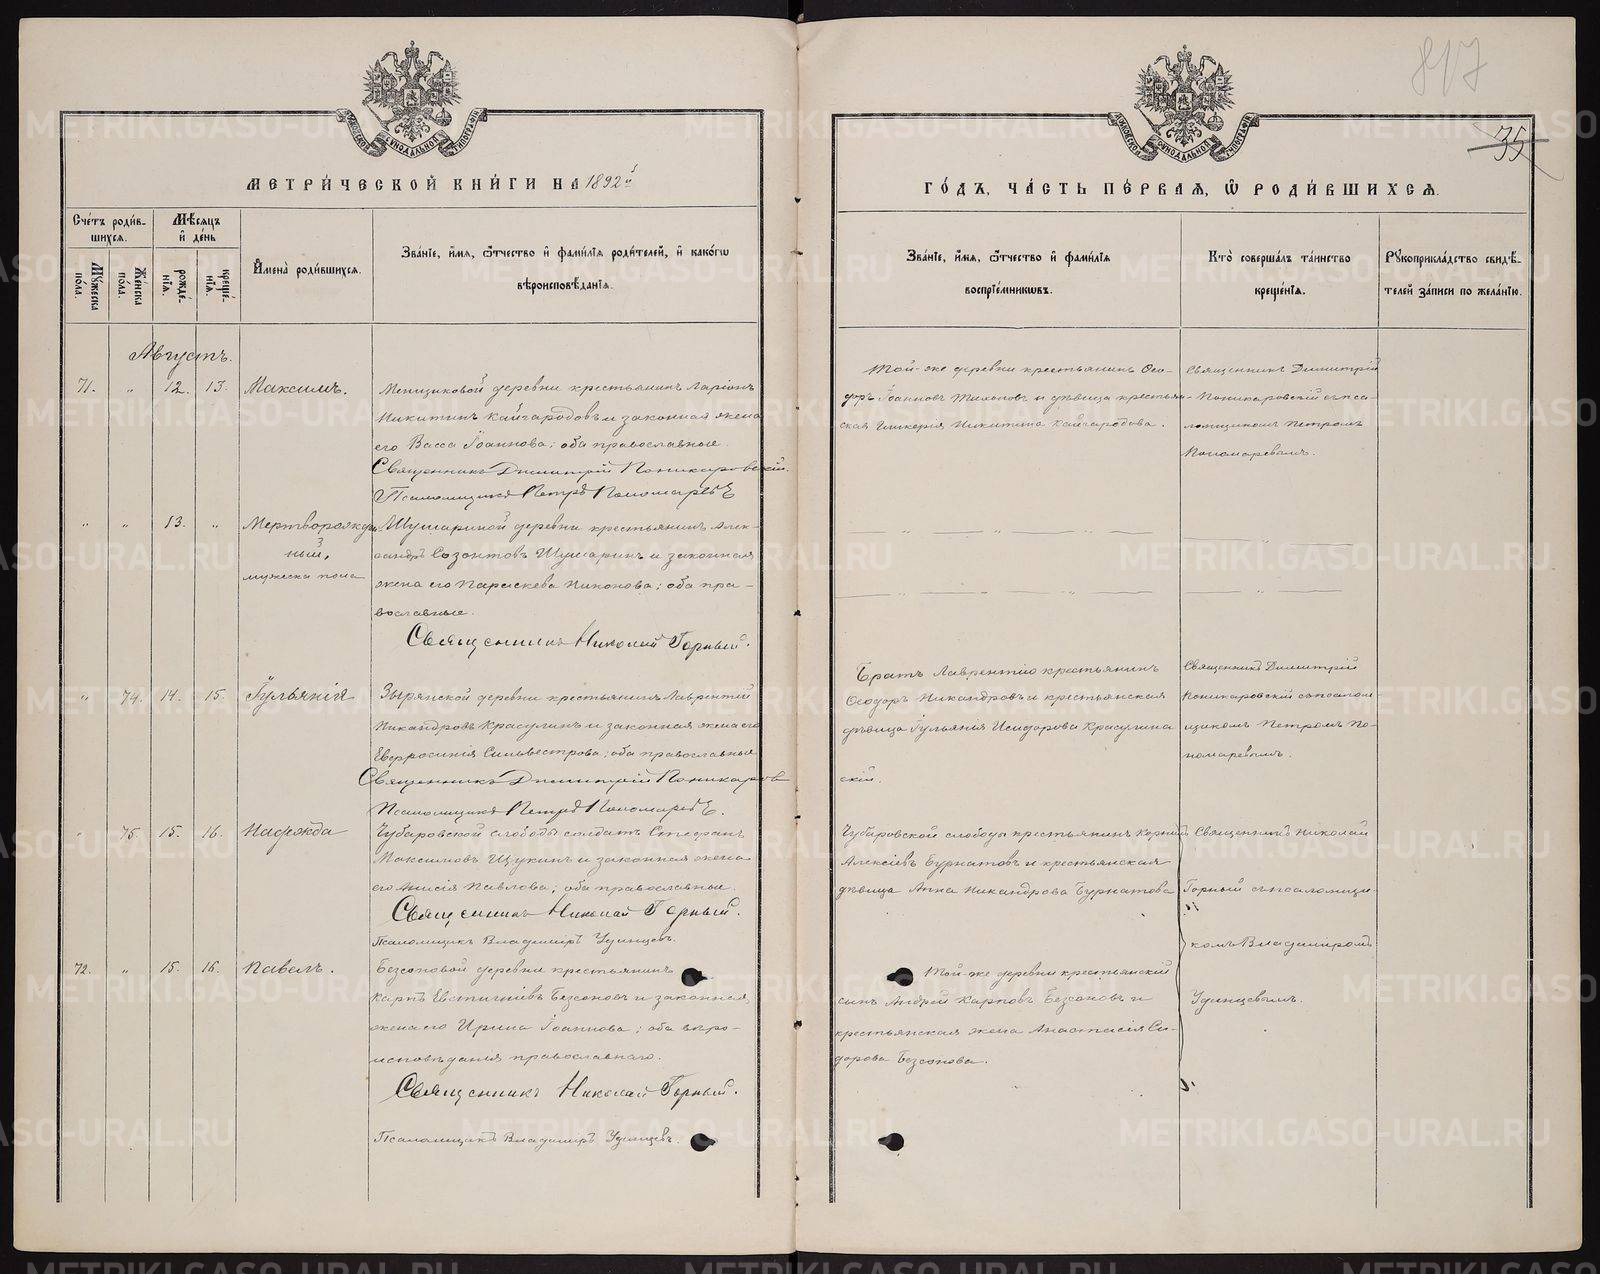 817
35
МЕТРИ́ЧЕСКОЙ КНИ́ГИ НА 1892й
ГО́ДЪ, ЧА́СТЬ ПЕ́РВАЯ, Ѡ РОДИ́ВШИХСЯ.
Сче́тъ роди́в-
шихся.
Мѣ́сяцъ
и҆ де́нь
Му́жеска пола.
Же́нска пола.
рожде́-
нїя.
креще́-
нїя.
И҆мена̀ роди́вшихся.
Зва́нїе, и҆́мя, ѻ҆́тчество и҆ фами́лїя роди́телей, и҆ како́гѡ
вѣроисповѣ́данїя.
Зва́нїе, и҆́мя, ѻ҆́тчество и҆ фами́лїя
воспрїе́мникѡвъ.
Кто̀ соверша́лъ та́инство
креще́нїя.
Рꙋкоприкла́дство свидѣ́-
телей за́писи по жела́нїю.
Августъ.
71. " 12. 13. Максимъ.
Менщиковой деревни крестьянинъ Ларіонъ
Никитинъ Кайгародовъ и законная жена
его Васса Іоаннова; оба православные.
Священникъ Димитрій Поникаровскій.
Псаломщикъ Петръ Пономаревъ
Той-же деревни крестьянинъ Ѳео-
доръ Іоанновъ Тихоновъ и дѣвица крестьян-
ская Гликерія Никитина Кайгародова.
Священникъ Димитрій
Поникаровскій съ пса-
ломщикомъ Петромъ
Пономаревымъ.
" " 13. " Мертворожден-
ный,
мужеска пола
Шушариной деревни крестьянинъ Алек-
сандръ Созонтовъ Шушаринъ и законная
жена его Параскева Никонова; оба пра-
вославные.
Священникъ Николай Горный.
" 74. 14. 15. Іульянія
Зырянской деревни крестьянинъ Лаврентій
Никандровъ Красулинъ и законная жена его
Евфросинія Сильвестрова; оба православные
Священникъ Димитрій Поникаров
Псаломщикъ Петръ Пономаревъ.
Братъ Лаврентію крестьянинъ
Ѳеодоръ Никандровъ и крестьянская
дѣвица Іульянія Исидорова Красулина
скій.
Священникъ Димитрій
Поникаровскій съ псалом
щикомъ Петромъ По-
номаревымъ.
" 75. 15. 16. Надежда
Чубаровской слободы солдатъ Стефанъ
Максимовъ Щукинъ и законная жена
его Анисія Павлова; оба православные.
Священникъ Николай Горный.
Псаломщикъ Владимиръ Удинцевъ.
Чубаровской слободы крестьянинъ Корнилъ
Алексіевъ Бурнатовъ и крестьянская
дѣвица Анна Никандрова Бурнатова
Священникъ Николай
Горный съ псаломщи-
комъ Владимиромъ
Удинцевымъ.
72. " 15. 16. Павелъ.
Безсоновой деревни крестьянинъ
Карпъ Евстигніевъ Безсоновъ и законная
жена его Ирина Іоаннова; оба вѣро-
исповѣданія православнаго.
Священникъ Николай Горный.
Псаломщикъ Владимиръ Удинцевъ.
Той же деревни крестьянскій
сынъ Андрей Карповъ Безсоновъ и
крестьянская жена Анастасія Си-
дорова Безсонова.